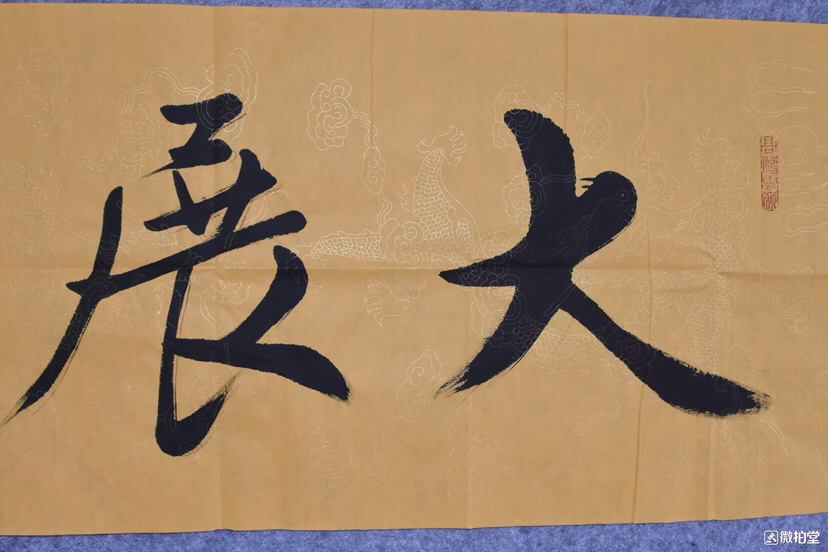 大展
微拍堂